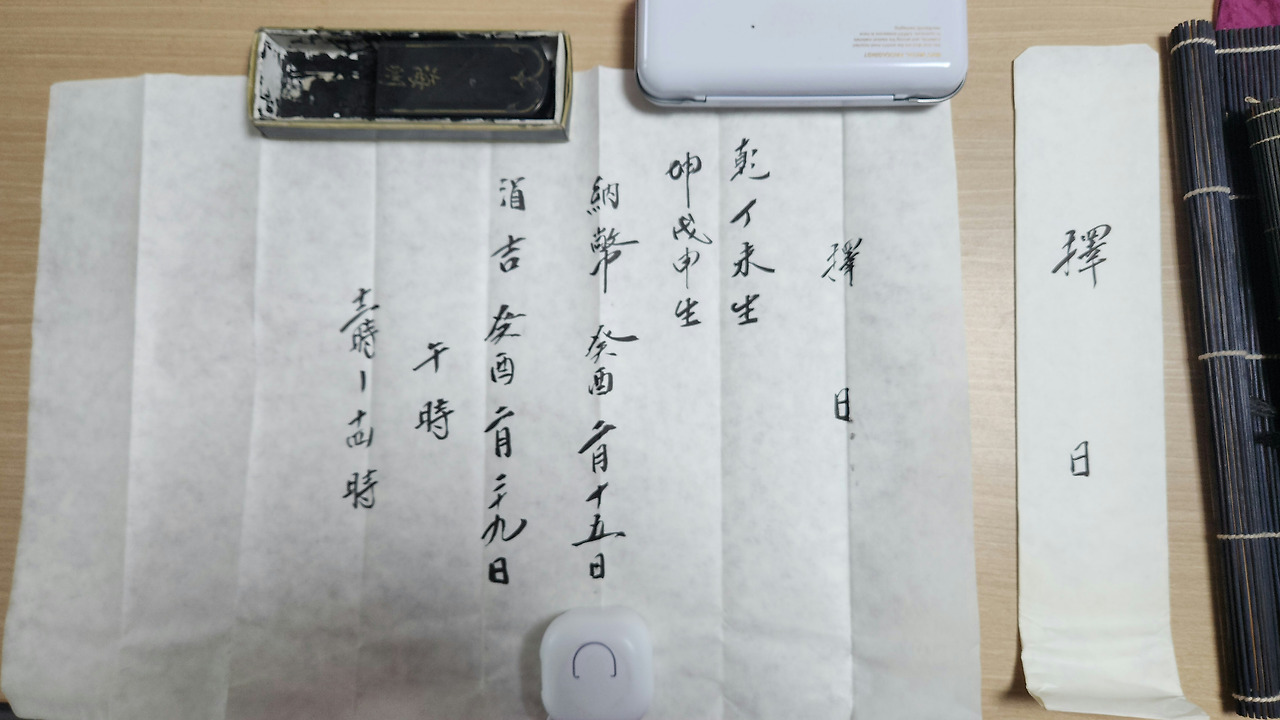 擇日
乾 丁未生
坤 戊申生
納幣 癸酉 二月 十五日
涓吉 癸酉 二月 二十九日
午時
十二時 ー 十四時
擇日